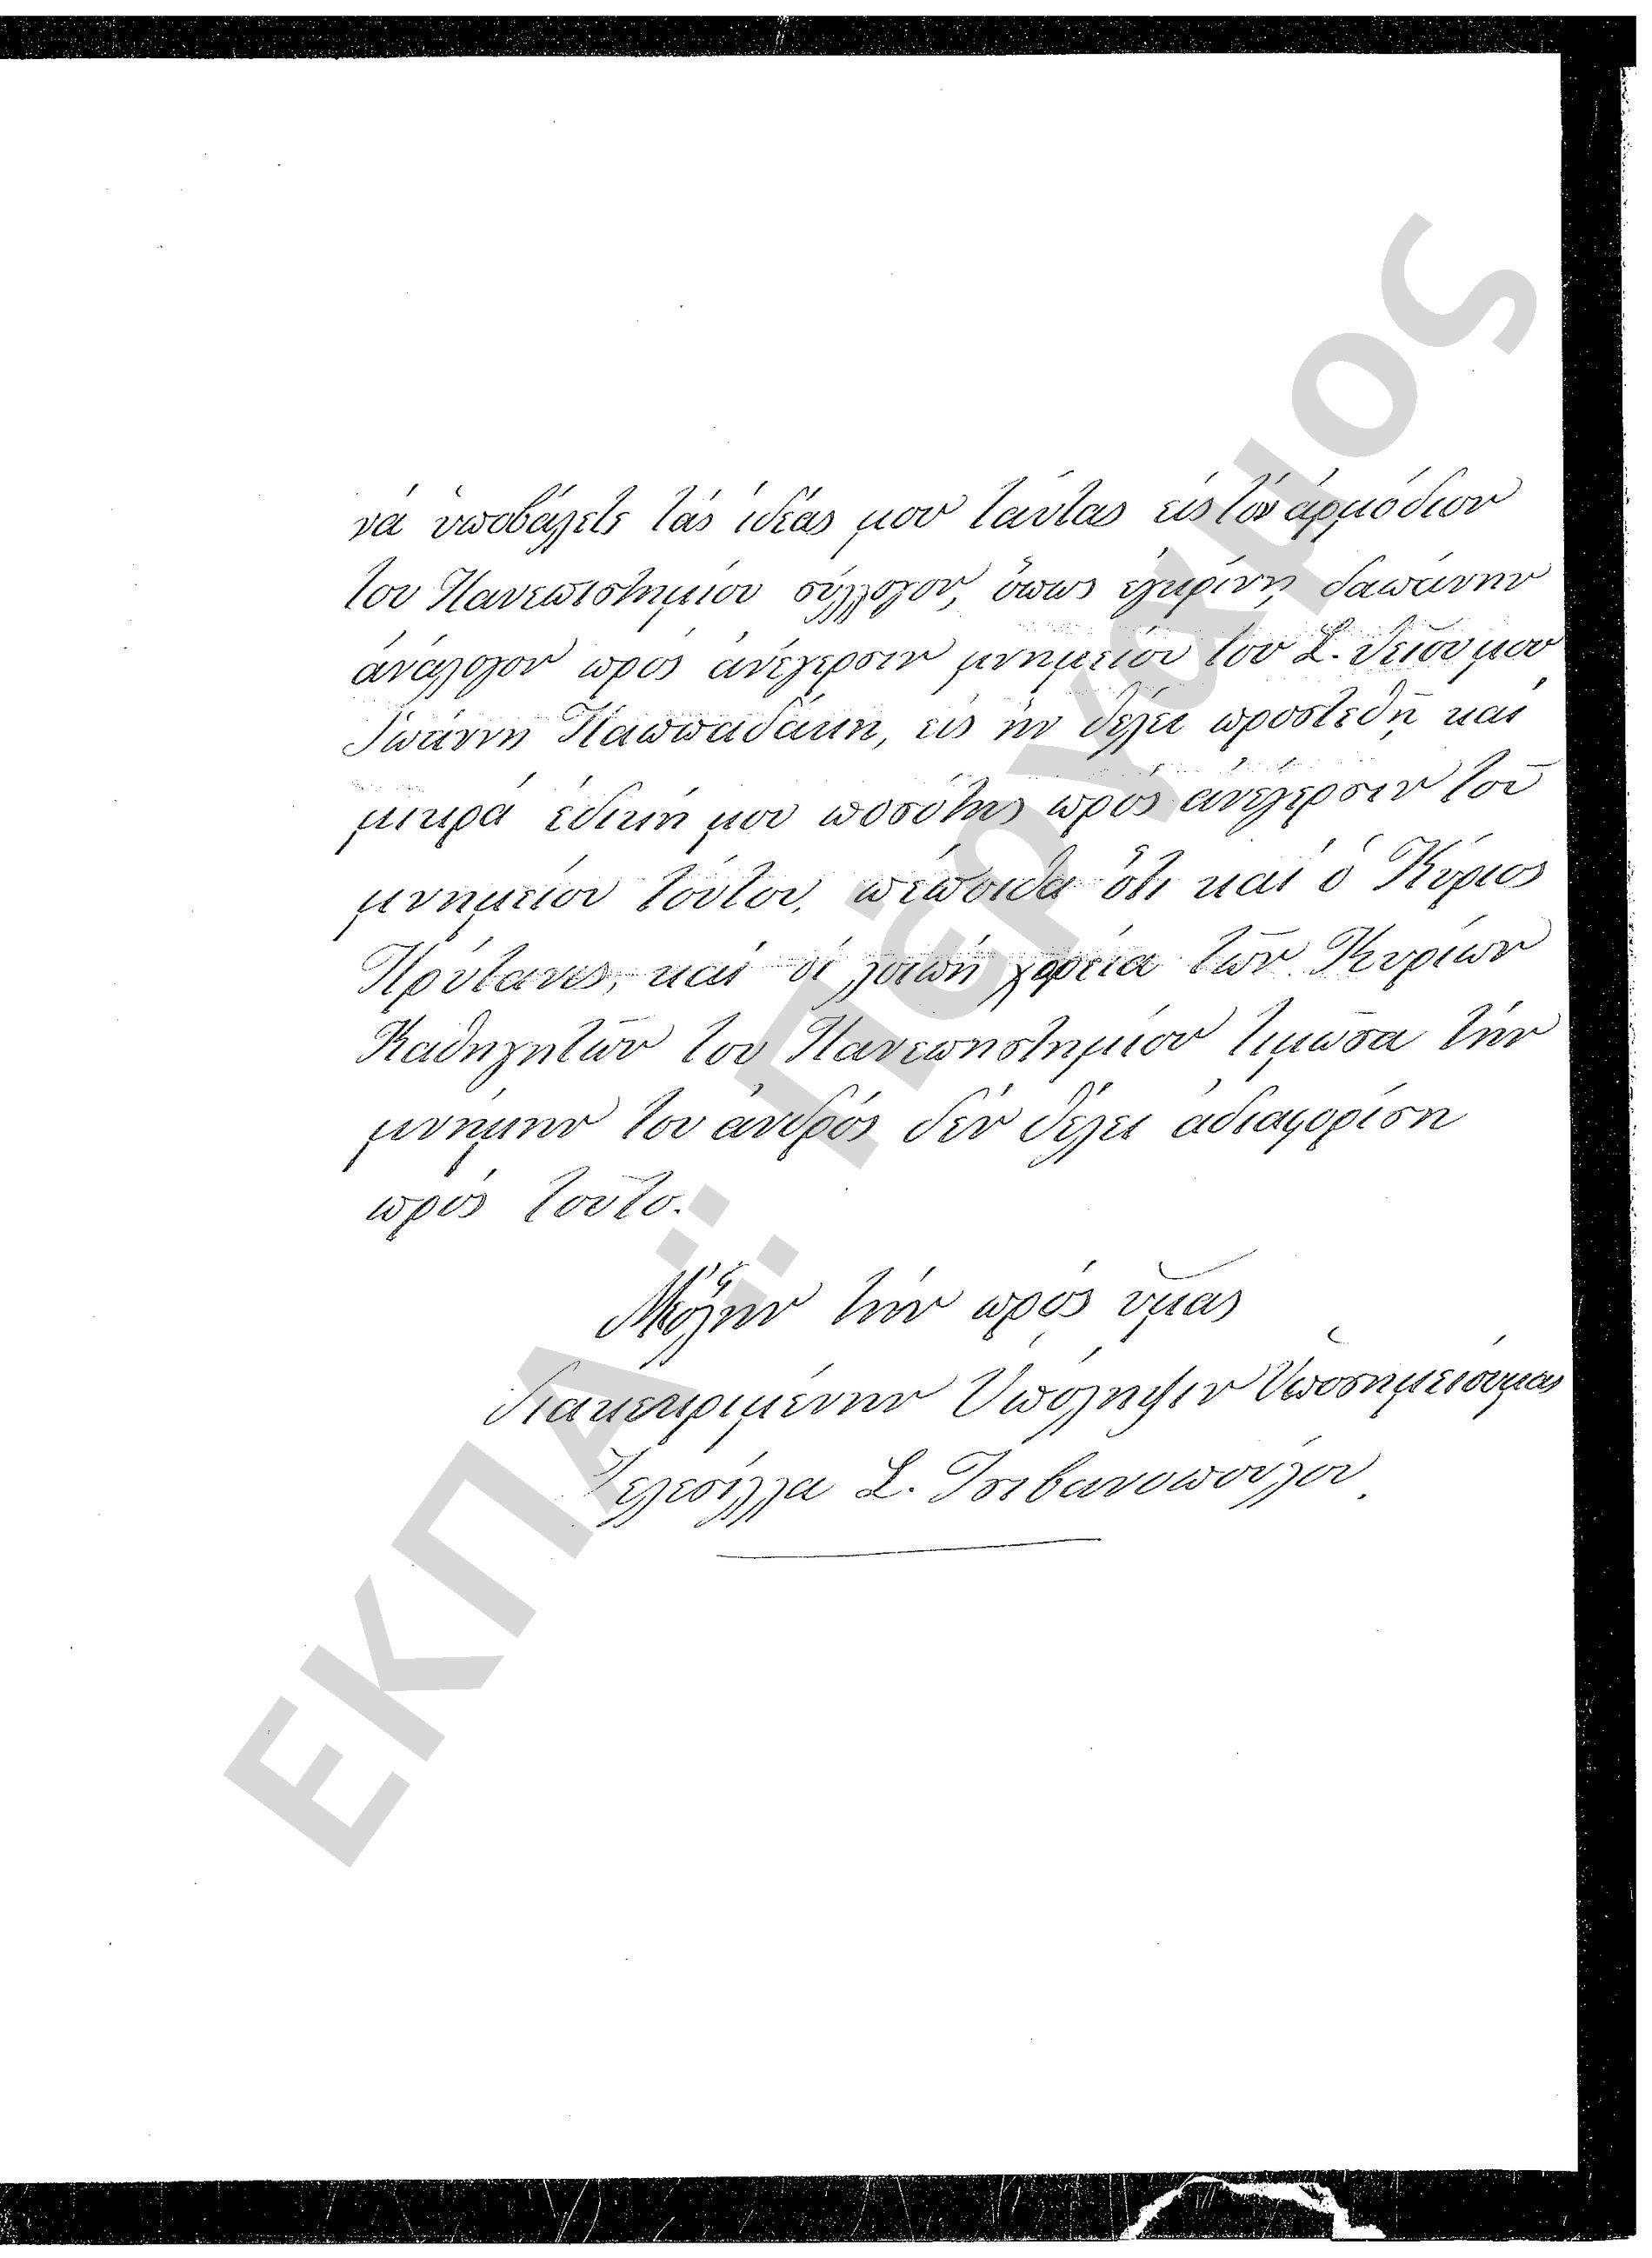 νά ὑποβάλετε τάς ἰδέας μου ταύτας εἰς τόν ἁρμόδιον
του Πανεπιστημίου σύλλογον, ὅπως ἐγκρίνῃ δαπάνην
ἀνάλογον πρός ἀνέγερσιν μνημείου του Σ. θείου μου
Ἰωάννη Παππαδάκη, εἰς ἥν θέλει προστεθῇ καί
μικρά ἐδική μου ποσότης πρός ἀνέγερσιν τοῦ
μνημείου τούτου, πέποιθα ὅτι καί ὁ Κύριος
Πρύτανις, καί οἱ λοιπή χορεία τῶν Κυρίων
Καθηγητῶν του Πανεπηστημίου τιμῶσα τήν
μνήμην του ἀνδρός δέν θέλει ἀδιαφορίση
πρός τοῦτο.
Μέ ὅλην τήν πρός ὑμας
διακεκριμένην Ὑπόληψιν Ὑποσημειοῦμαι
Τελεσίλλα Σ. Τσιβανοπούλου.
ΕΚΠΑ :: Πέργαμος